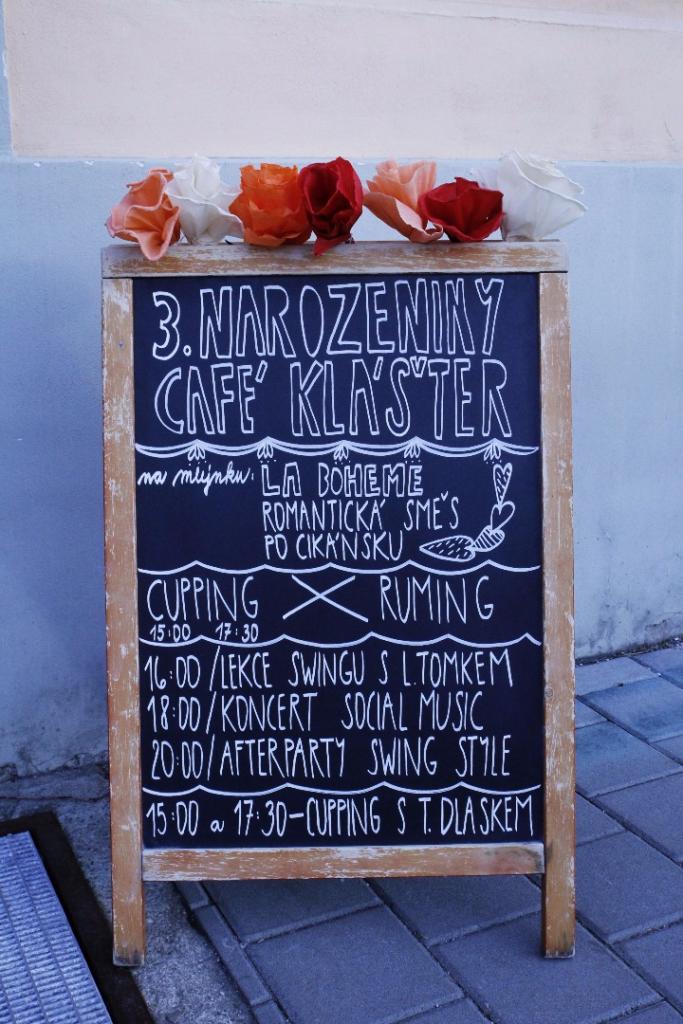 3. NAROZENINY
CAFÉ KLÁŠTER
na mlýnku: LA BOHEME
ROMANTICKÁ SMĚS
PO CIKÁNSKU
CUPPING X RUMING
15:00 17:30
16:00/LEKCE SWINGU S L.TOMKEM
18:00/KONCERT SOCIAL MUSIC
20:00/AFTERPARTY SWING STYLE
15:00 a 17:30-CUPPING S T. DLASKEM